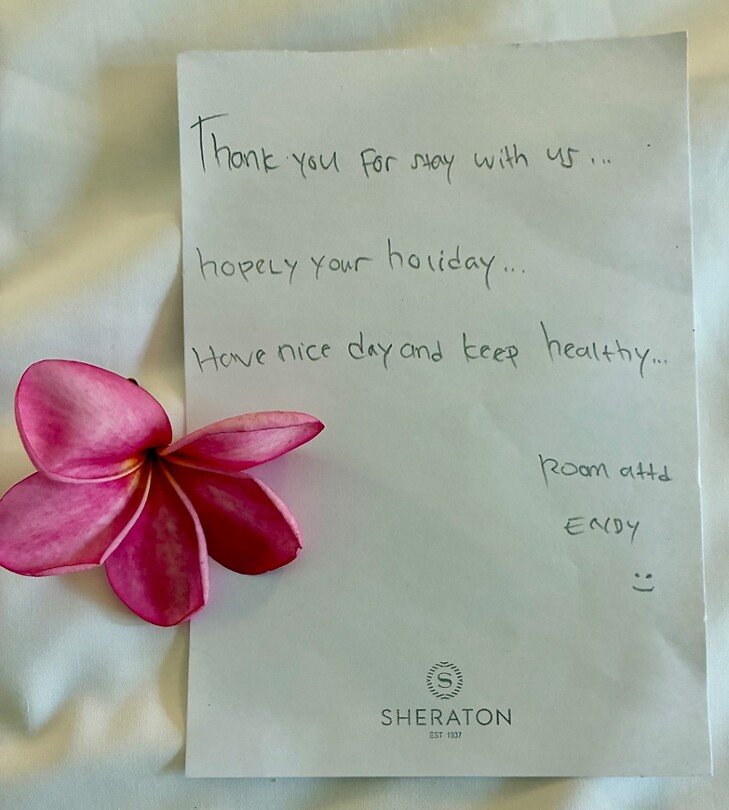 Thank you For stay with us...
hopely your holiday...
Have nice day and keep healthy...
Room attd
ENDY
:)
S
SHERATON
EST 1937